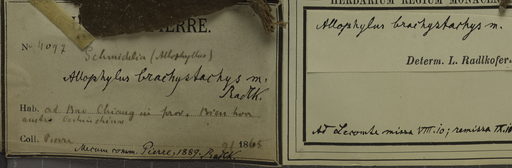 PIERRE.
No 4097 Schmidelia (Allophyllus)
Allophylus brachystachys m.
Radlk.
Hab. ad Bao Chiang in prov. Bien hoa
austro Cochinchina
Coll. Pierre 1865
Mecum comm. Pierre, 1889. Radlk.
HERBARIUM REGIUM MONACENSE
Allophylus brachystachys m.
Determ. L. Radlkofer
Ad Lecomte missa VIII.10; remissa IX.10